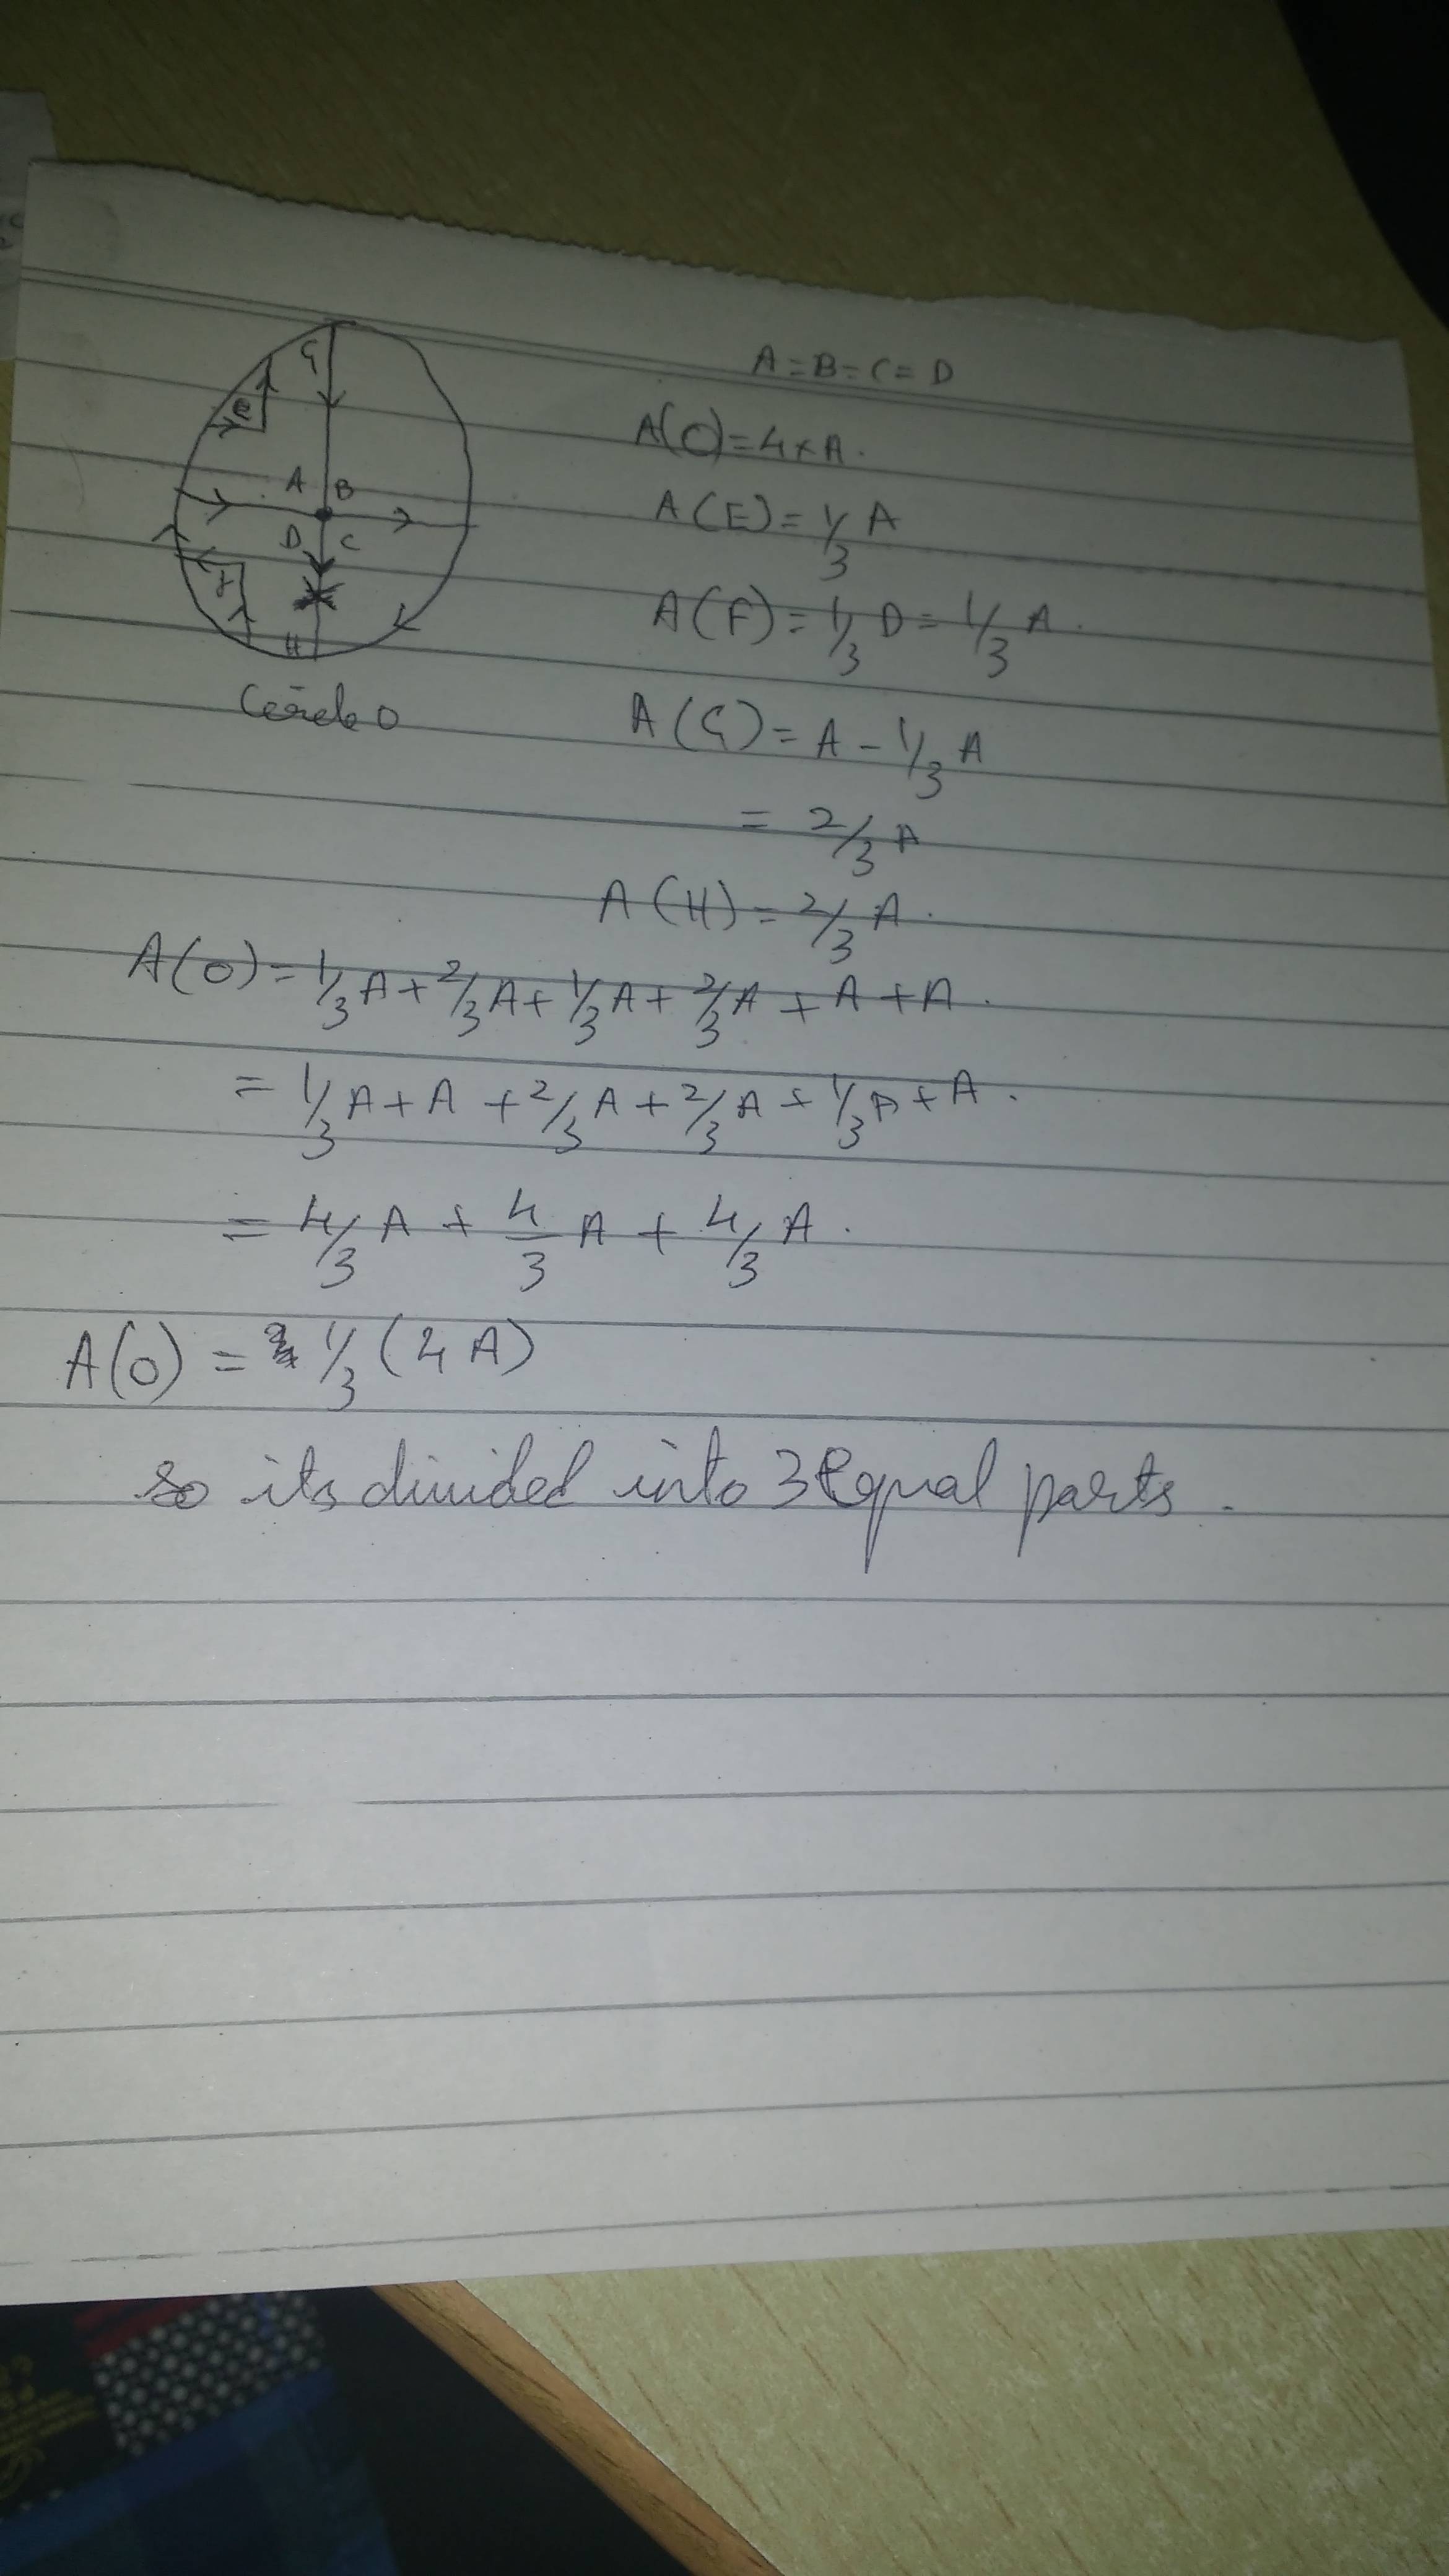 G
e
A B
D C
f
H
Circle O
A = B = C = D
A(O) = 4 x A.
A(E) = 1/3 A
A(F) = 1/3 D = 1/3 A.
A(G) = A - 1/3 A
= 2/3 A
A(H) = 2/3 A.
A(O) = 1/3 A + 2/3 A + 1/3 A + 2/3 A + A + A.
= 1/3 A + A + 2/3 A + 2/3 A + 1/3 A + A.
= 4/3 A + 4/3 A + 4/3 A.
A(O) = 1/3 (4 A)
so its divided into 3 Equal parts.